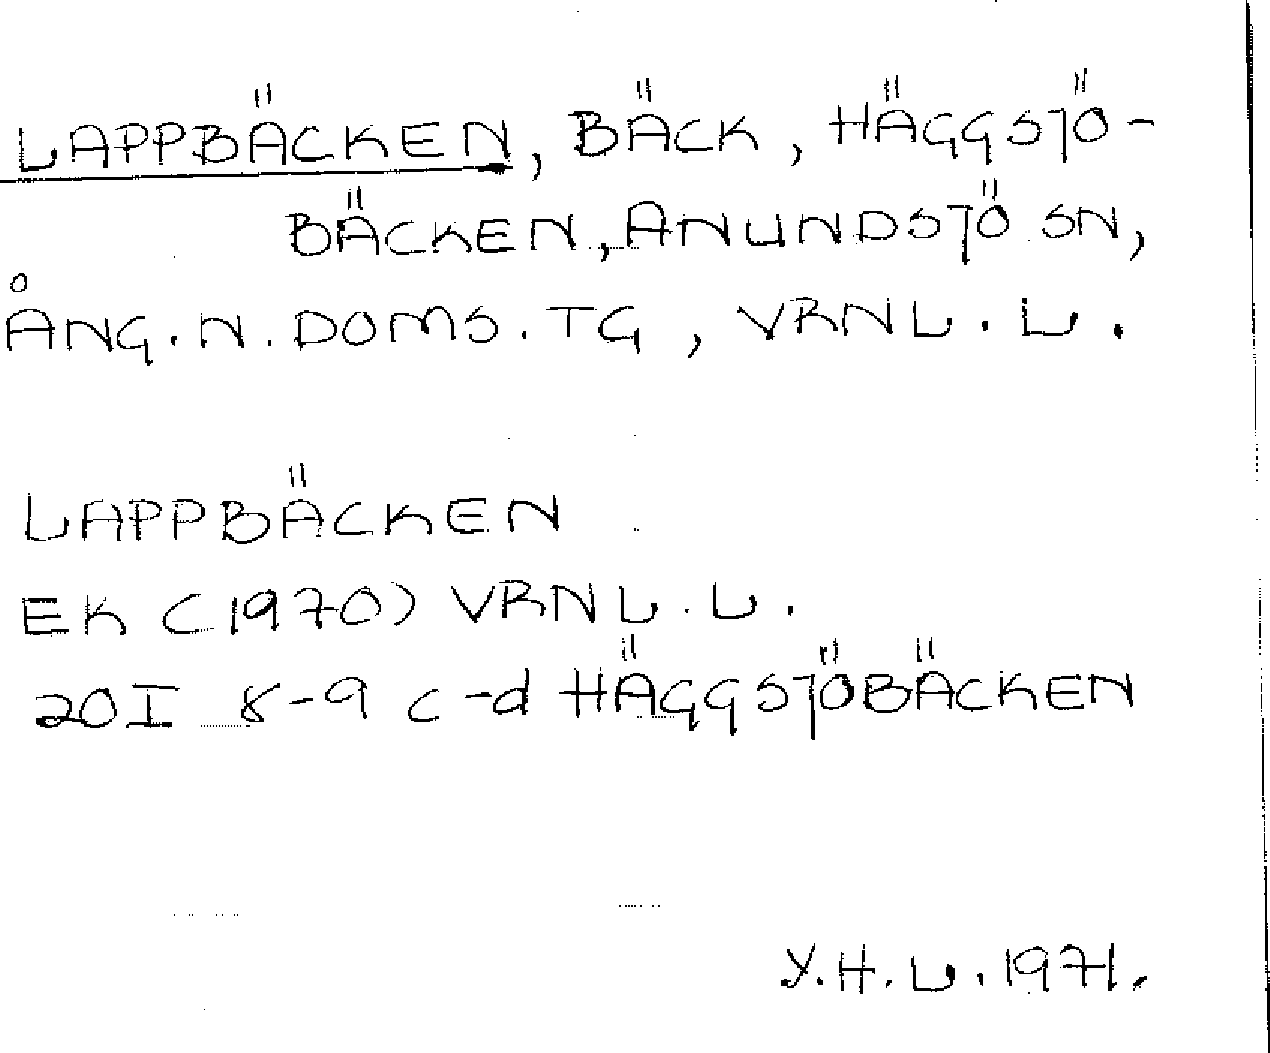 LAPPBÄCKEN, BÄCK, HÄGGSJÖ-
BÄCKEN, ANUNDSJÖ SN,
ÅNG.N.DOMS.TG, VRNL.L.
LAPPBÄCKEN
EK (1970) VRNL.L.
20I 8-9 c-d HÄGGSJÖBÄCKEN
Y.H.L. 1971.